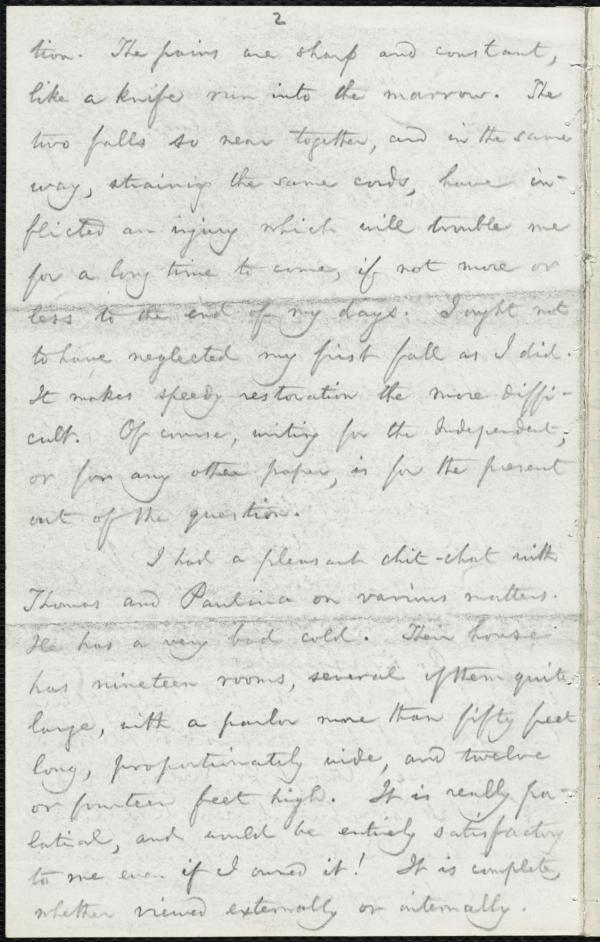 2
tion. The pains are sharp and constant,
like a knife run into the marrow. The
two falls so near together, and in the same
way, straining the same cords, have in-
flicted an injury which will trouble me
for a long time to come, if not more or
less to the end of my days. I ought not
to have neglected my first fall as I did.
It makes speedy restoration the more diffi-
cult. Of course, writing for the Independent,
or for any other paper, is for the present
out of the question.
I had a pleasant chit-chat with
Thomas and Paulina on various matters.
He has a very bad cold. Their house
has nineteen rooms, several of them quite
large, with a parlor more than fifty feet
long, proportionately wide, and twelve
or fourteen feet high. It is really pa-
latial, and would be entirely satisfactory
to me even if I owned it! It is complete,
whether viewed externally or internally.